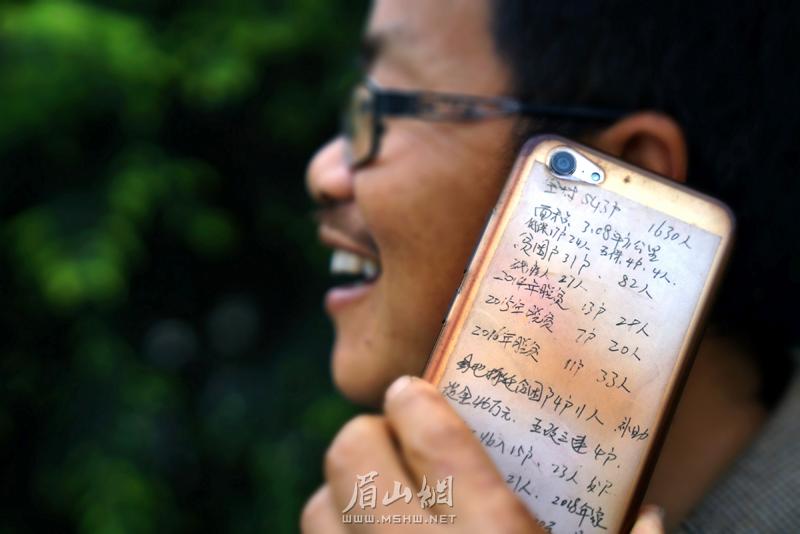 全村543户 1630人
面积 3.08平方公里
低保17户24人 五保4户,4人.
贫困户31户、 82人
残疾人 27人
2014年脱贫 13户 28人
2015年脱贫 7户 20人
2016年脱贫 11户 33人
易地搬迁贫困户4户11人 补助
资金46万元. 五改三建 4户.
15户、 73人
21人. 2018年
眉山網
WWW.MSHW.NET